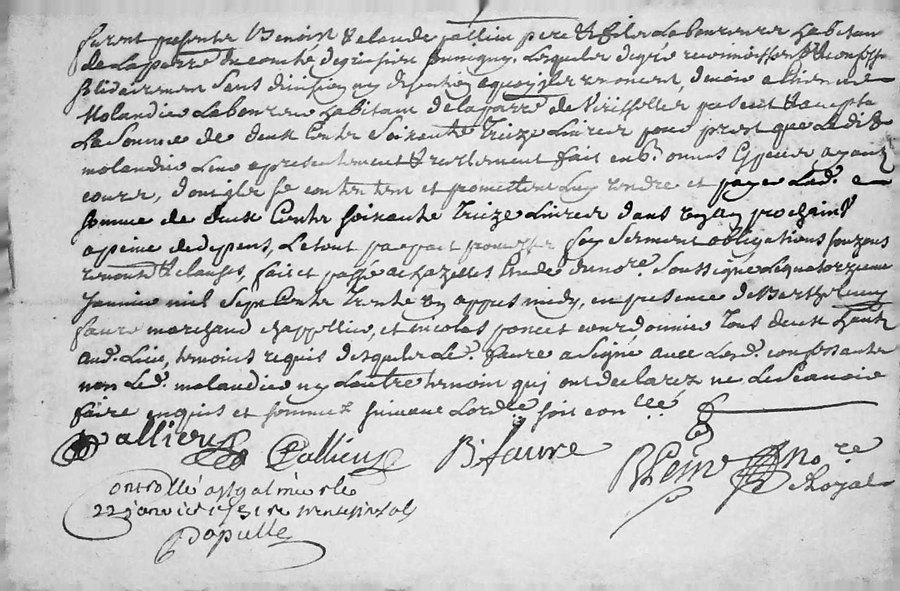 furent presents Benoist & claude pallieu pere & fils Laboureurs habitans
de La parre du comté de Lesquels de gré reconnoissent & confessent
solidairement sans division ny discution equoy ils renoncent, devoir a
Molandié Laboureur habitant de la parre de Virissellee present & acceptant
La Somme de deux Cents Soixante Treize Livres pour prest que Ledit
molandié Leur a presentement & reellement fait en bonnes Especes ayant
cours, dont ils se contentent et promettent Luy rendre et payer Lad.
somme de deux Cents soixante Treize Livres dans un an prochain
a peine de depens, Le tout par pact promesse foy serment obligations souzons
renont & clauses, fait et passé a chazelles Etude du no.re Soussigné Le quatorzieme
Janvier mil Sept Cents Trente un appres midy, en presence de Barthelemy
faure marchand chappellier, et nicolas poncet courdonnier Tous deux habts
aud. Lieu, temoins requis desquels Led. faure a signé avec Lesd. confessants
non Led. molandié ny Lautre temoin qui ont declarez ne Le Scavoir
faire enquis et sommez suivant Lord.ce soit con.llé
Pallieu Pallieu B faure no.re
Royal
ontrollé a st galmier le
22 janvier 1731 re trente six sols
Dapulle